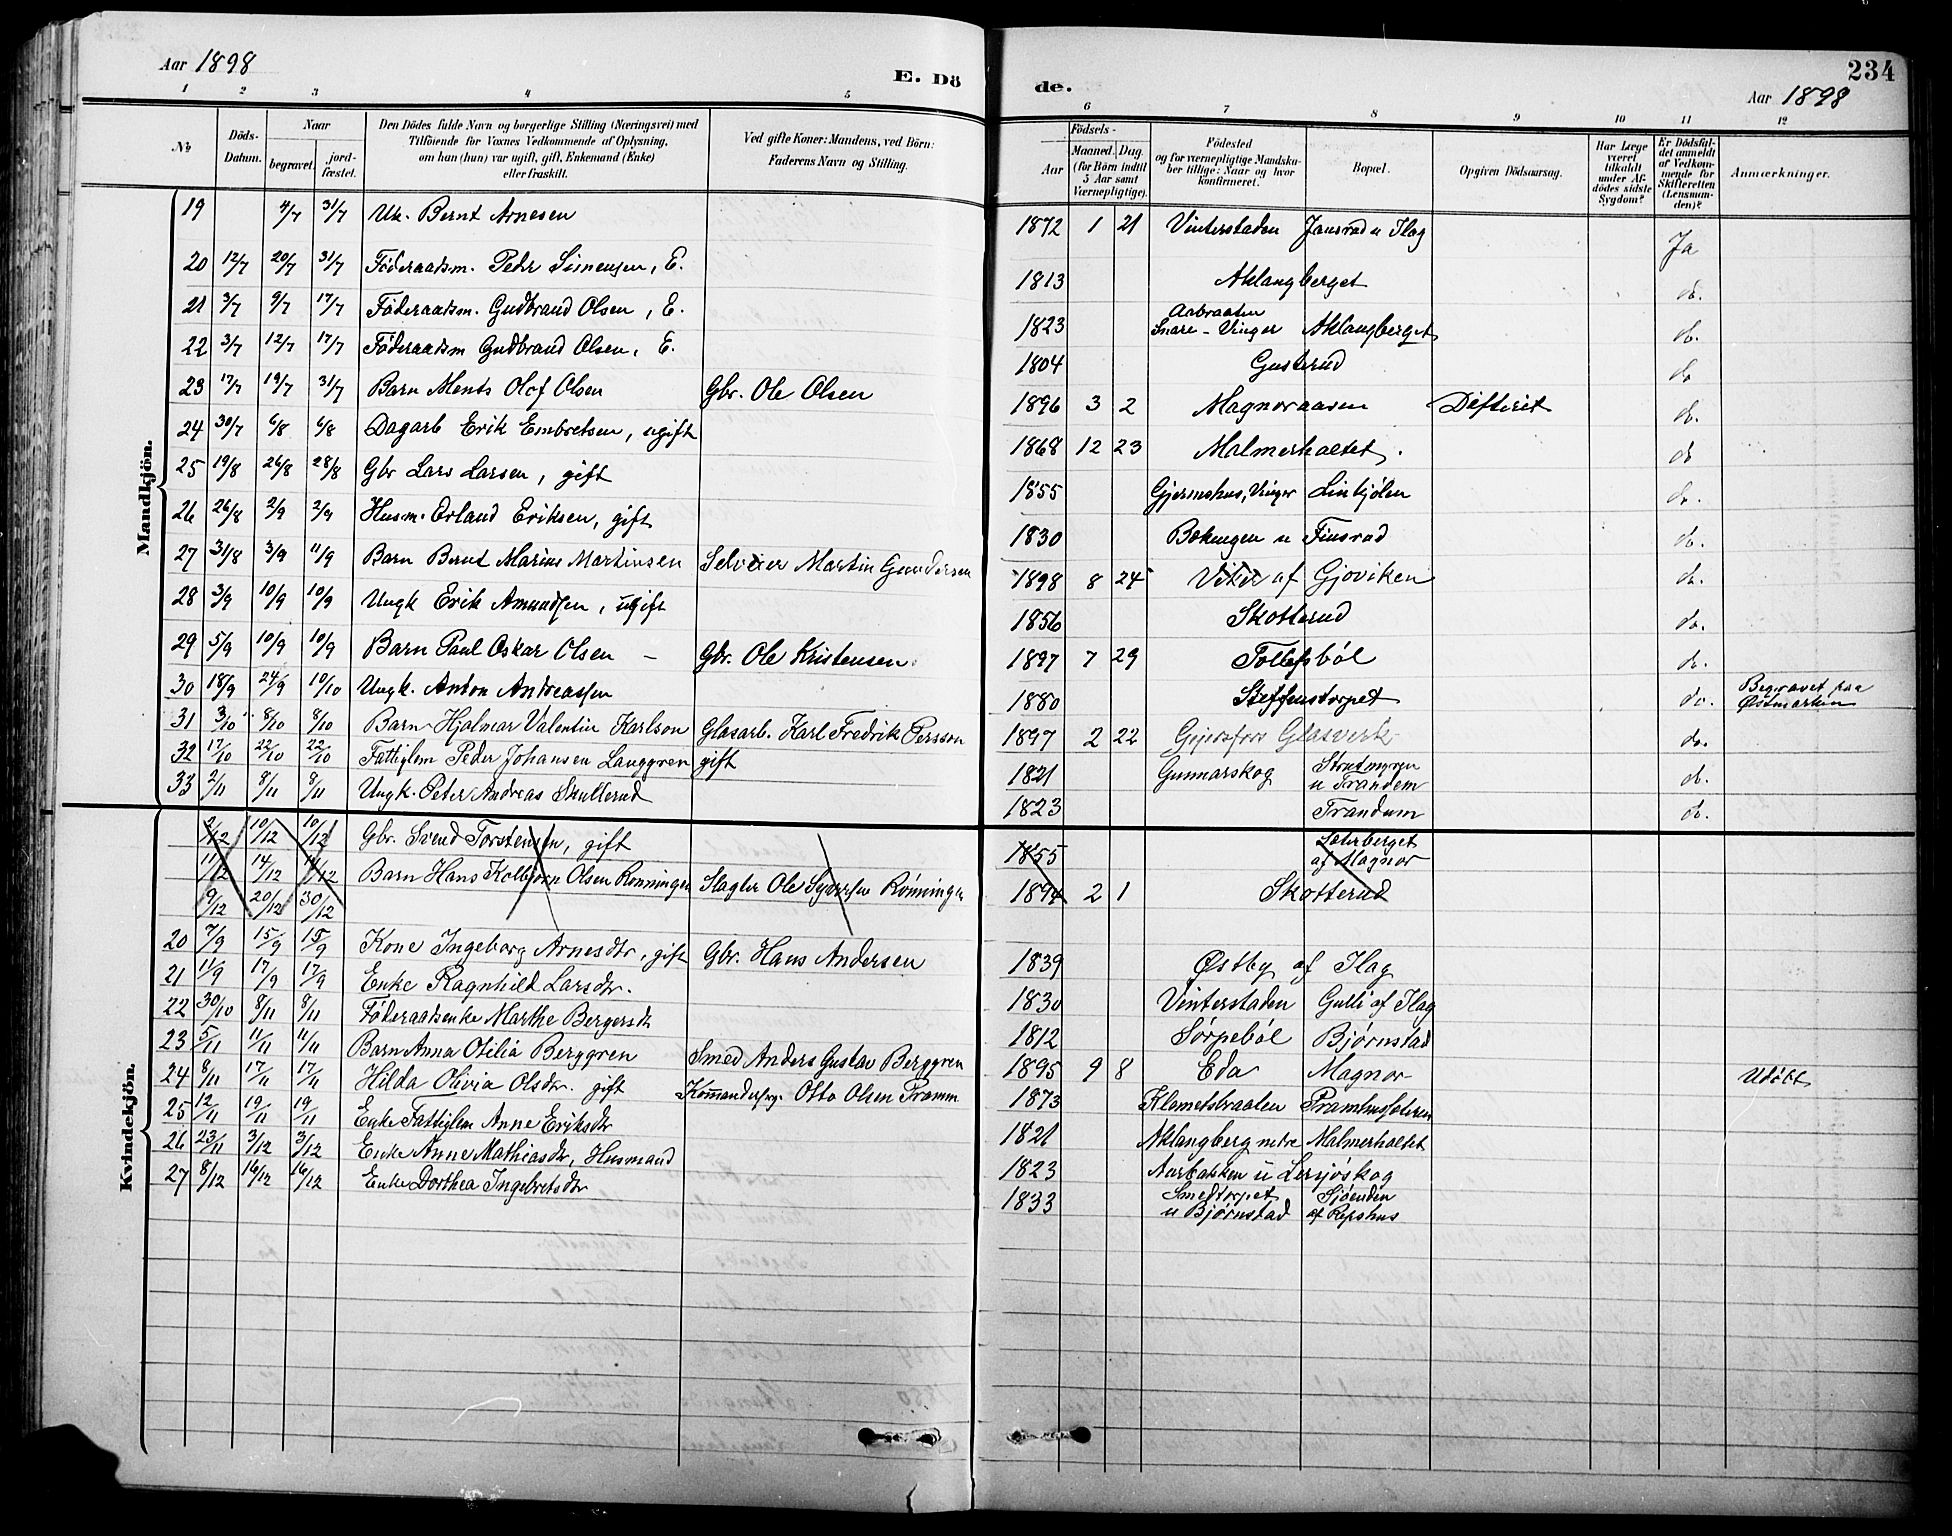 Aar 1898
E. Dö
de.
234
Aar 1898
1 2 3 4 5 6 7 8 9 10 11 12
№
Döds-Datum.
Naar
begravet.
jord-fæstet.
Den Dödes fulde Navn og borgerlige Stilling (Næringsvei) med
Tilföiende for Voxnes Vedkommende af Oplysning,
om han (hun) var ugift, gift, Enkemand (Enke)
eller fraskilt.
Ved gifte Koner: Mandens, ved Börn:
Faderens Navn og Stilling.
Födsels-
Aar
Maaned. Dag.
(for Börn indtil
5 Aar samt
Værnepligtige).
Födested
og for værnepligtige Mandska-
ber tillige: Naar og hvor
konfirmeret.
Bopæl.
Opgiven Dödsaarsag.
Har Læge
været
tilkaldt
under Af-
dödes sidste
Sygdom?
Er Dödsfal-
det anmeldt
af Vedkom-
mende for
Skifteretten
(Lensman-
den)?
Anmærkninger.
Mandkjön.
19 4/7 31/7 Uk. Bernt Arnesen 1872 1 21 Vinterstaden Jansrud u Ilag Ja
20 12/7 20/7 31/7 Föderaadsm. Peder Simensen, E. 1813 Aklangberget do.
21 3/7 9/7 17/7 Föderaadsm. Gudbrand Olsen, E. 1823 Aabraaten Snare-Vinger Aklangberget do.
22 3/7 12/7 17/7 Föderaadsm Gudbrand Olsen, E. 1804 Gusterud do
23 17/7 19/7 31/7 Barn Ments Olof Olsen Gbr. Ole Olsen 1896 3 2 Magnoraasen Difterit do.
24 30/7 6/8 6/8 Dagarb Erik Embretsen, ugift 1868 12 23 Malmerholtet. do
25 19/8 26/8 28/8 Gbr Lars Larsen, gift 1855 Gjermshus, Vinger Linkjølen do.
26 26/8 2/9 2/9 Husm. Erland Eriksen, gift 1830 u Finsrud do.
27 31/8 3/9 11/9 Barn Bernt Marius Martinsen Selveier Martin Gundersen 1898 8 24 af Gjoviken do.
28 3/9 10/9 10/9 Ungk Erik Amundsen, ugift 1856 Skotterud do.
29 5/9 10/9 10/9 Barn Paul Oskar Olsen – Gbr. Ole Kristensen 1897 7 29 Tollefsböl do.
30 18/9 24/9 10/10 Ungk. Anton Andreassen 1880 Steffenstorpet do. Begravet paa Østmarken
31 3/10 8/10 8/10 Barn Hjalmar Valentin Karlson Glasarb. Karl Fredrik Persson 1897 2 22 Gjejersfors Glasverk do.
32 17/10 22/10 22/10 Fattiglem Peder Johansen Langgren gift 1821 Gunnarskog Strutmyren u Trandem do.
33 2/11 8/11 8/11 Ungk. Peter Andreas Skullerud 1823 Trandum do.
2/12 10/12 10/12 Gbr. Svend Torstensen, gift 1855 Sæterberget af Magnor
11/12 14/12 14/12 Barn Hans Kolbjörn Olsen Rønningen Slagter Ole Syversen Rønningen 1894 2 1 Skotterud
9/12 20/12 30/12
Kvindekjön.
20 7/9 15/9 15/9 Kone Ingeborg Arnesdtr, gift Gbr. Hans Andersen 1839 Østby af Ilag
21 11/9 17/9 17/9 Enke Ragnhild Larsdtr. 1830 Vinterstaden Gulli af Ilag
22 30/10 8/11 8/11 Föderaadsenke Marthe Bergersdt 1812 Sørpeböl Bjørnstad
23 5/11 11/11 11/11 Barn Anna Otilia Berggren Smed Anders Gustav Berggren 1895 9 8 Eda Magnor Udöbt
24 8/11 17/11 17/11 Hilda Olivia Olsdtr. gift Kommandersrg. Otto Olsen Pramm 1873 Klometsbraaten Pramhussæteren
25 12/11 19/11 19/11 Enke Fattiglem Anne Eriksdtr 1821 Aklangberg nedre Malmerholtet
26 23/11 3/12 3/12 Enke Anne Mathiasdtr, Husmand 1823 Aarbakken u Lersjöskog
27 8/12 16/12 16/12 Enke Dorthea Ingebretsdtr 1833 Smedtorpet u Bjørnstad Sjøenden af Repshus